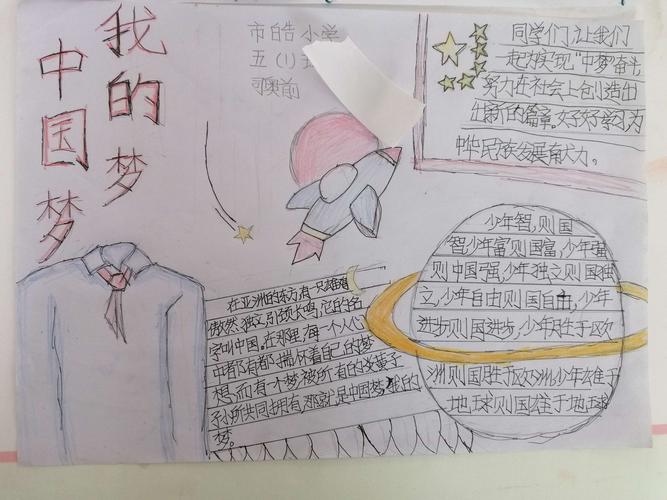 我的梦
中国梦
市皓小学
五(1)
同学们让我们
一起为实现“中梦”奋斗
努力在社会上创造出
出新的篇章。好好学习为
中华民族发展有大力。
在亚洲的东方有一只雄鸡
傲然独立引颈长鸣,它的名
字叫中国。在那里,每一个人心
中都有都揣怀着自己的梦
想,而有一个梦被所有的炎黄子
孙所共同拥有那就是中国梦我的
梦。
少年智,则国
智,少年富则国富,少年强
则中国强,少年独立则国独
立,少年自由则国自由,少年
进步则国进步,少年胜于欧
洲则国胜于欧洲,少年雄于
地球则国雄于地球